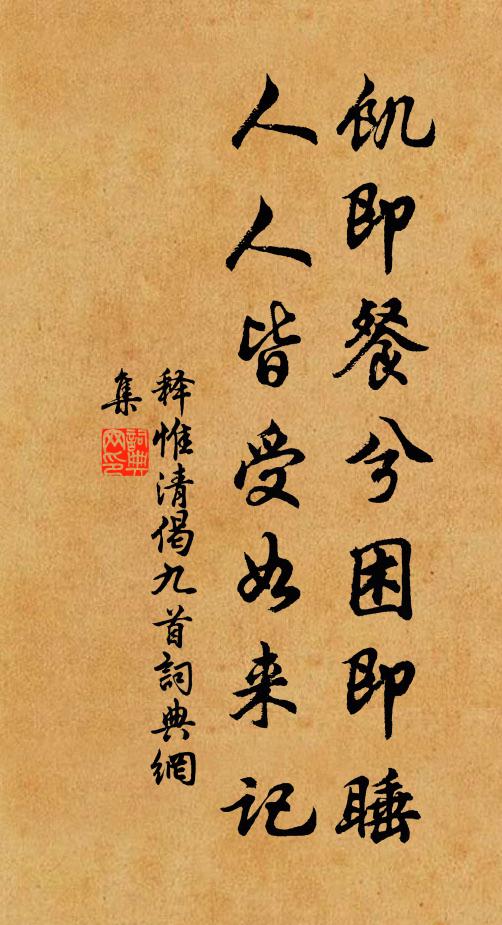 飢即餐兮困即睡
人人皆受如来记
释惟清偈九首詞典網
集
詞典
网印